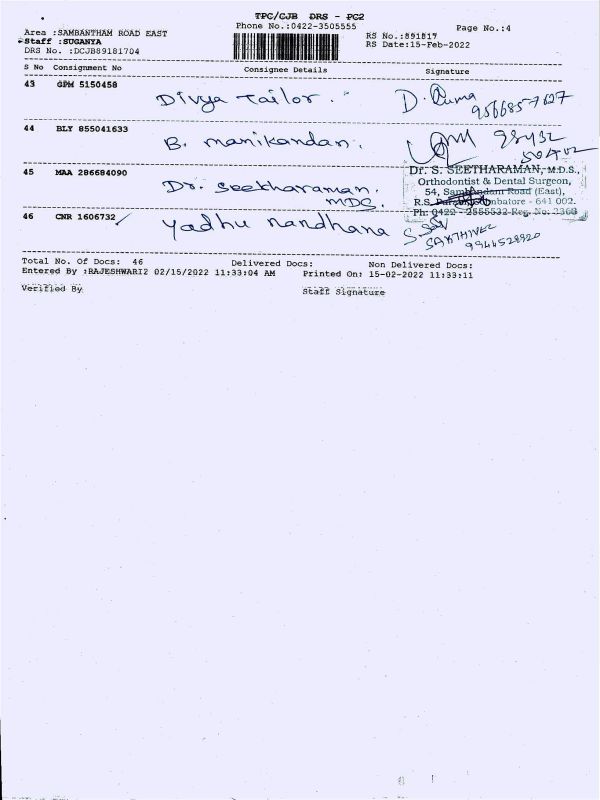 TPC/CJB DRS - PC2
Phone No.:0422-3505555
Page No.:4
Area :SAMBANTHAM ROAD EAST
Staff :SUGANYA
DRS No. :DCJB89181704
RS No.:891817
RS Date:15-Feb-2022
S No Consignment No Consignee Details Signature
43 GPM 5150458 Divya Tailor. D. 9566857627
44 BLY 855041633 B. manikandan.
45 MAA 286684090 Dr. Seetharaman. MDS.
Dr. S. SEETHARAMAN, M.D.S.,
Orthodontist & Dental Surgeon,
54, Sambandam Road (East),
R.S. Coimbatore - 641 002.
Ph: 0422 - 2555532 Reg. No: 2368
46 CNR 1606732 Yadhu nandhana
9944528920
Total No. Of Docs: 46 Delivered Docs: Non Delivered Docs:
Entered By :RAJESHWARI2 02/15/2022 11:33:04 AM Printed On: 15-02-2022 11:33:11
Verified By Staff Signature